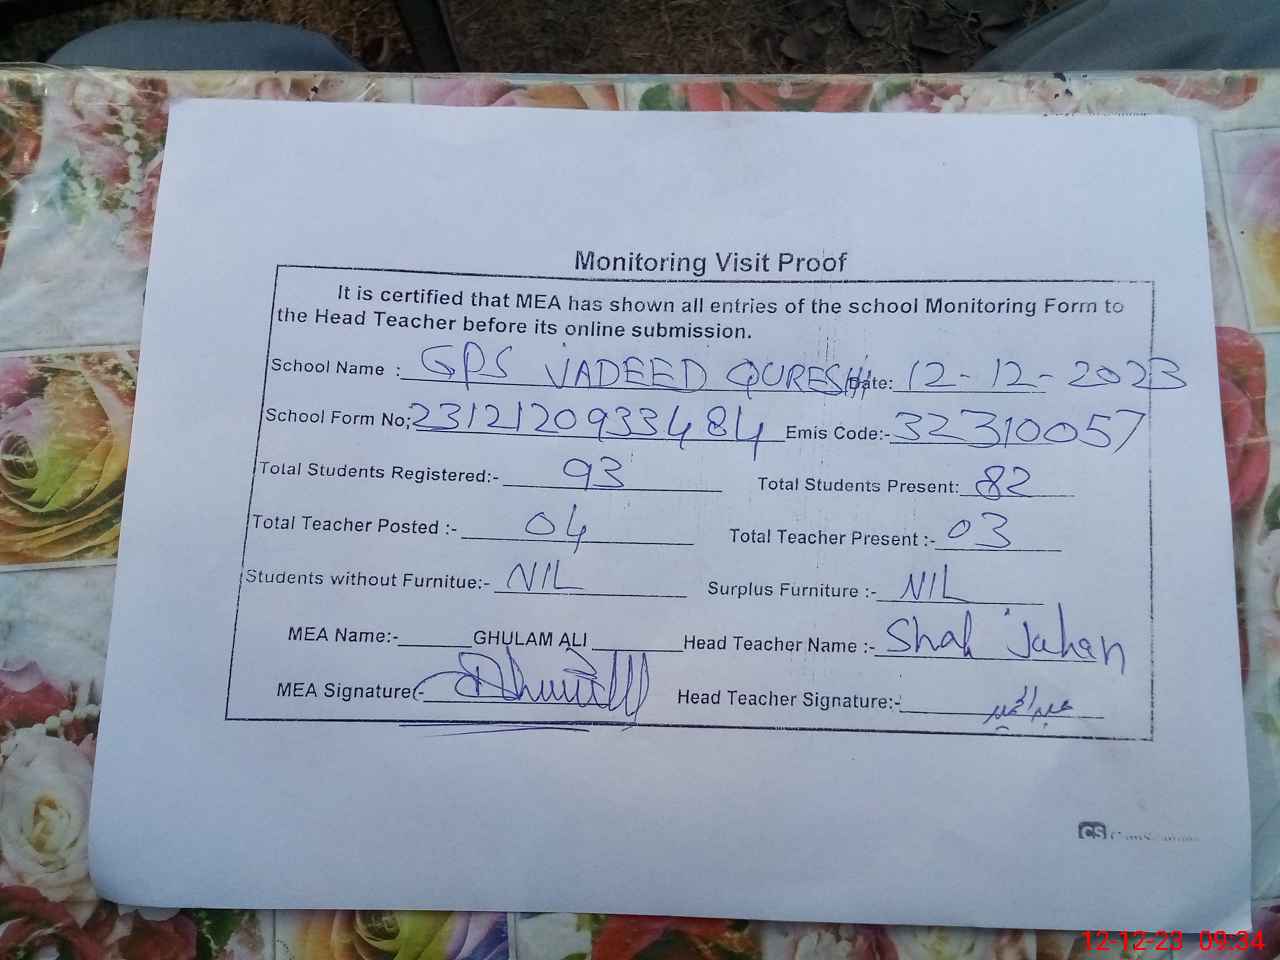 Monitoring Visit Proof
It is certified that MEA has shown all entries of the school Monitoring Form to
the Head Teacher before its online submission.
School Name : GPS JADEED QURESHI Date: 12-12-2023
School Form No; 2312120933484 Emis Code:- 32310057
Total Students Registered:- 93 Total Students Present: 82
Total Teacher Posted :- 04 Total Teacher Present :- 03
Students without Furnitue:- NIL Surplus Furniture :- NIL
MEA Name:- GHULAM ALI Head Teacher Name :- Shah Jahan
MEA Signature:- Head Teacher Signature:-
CS
12-12-23 09:34